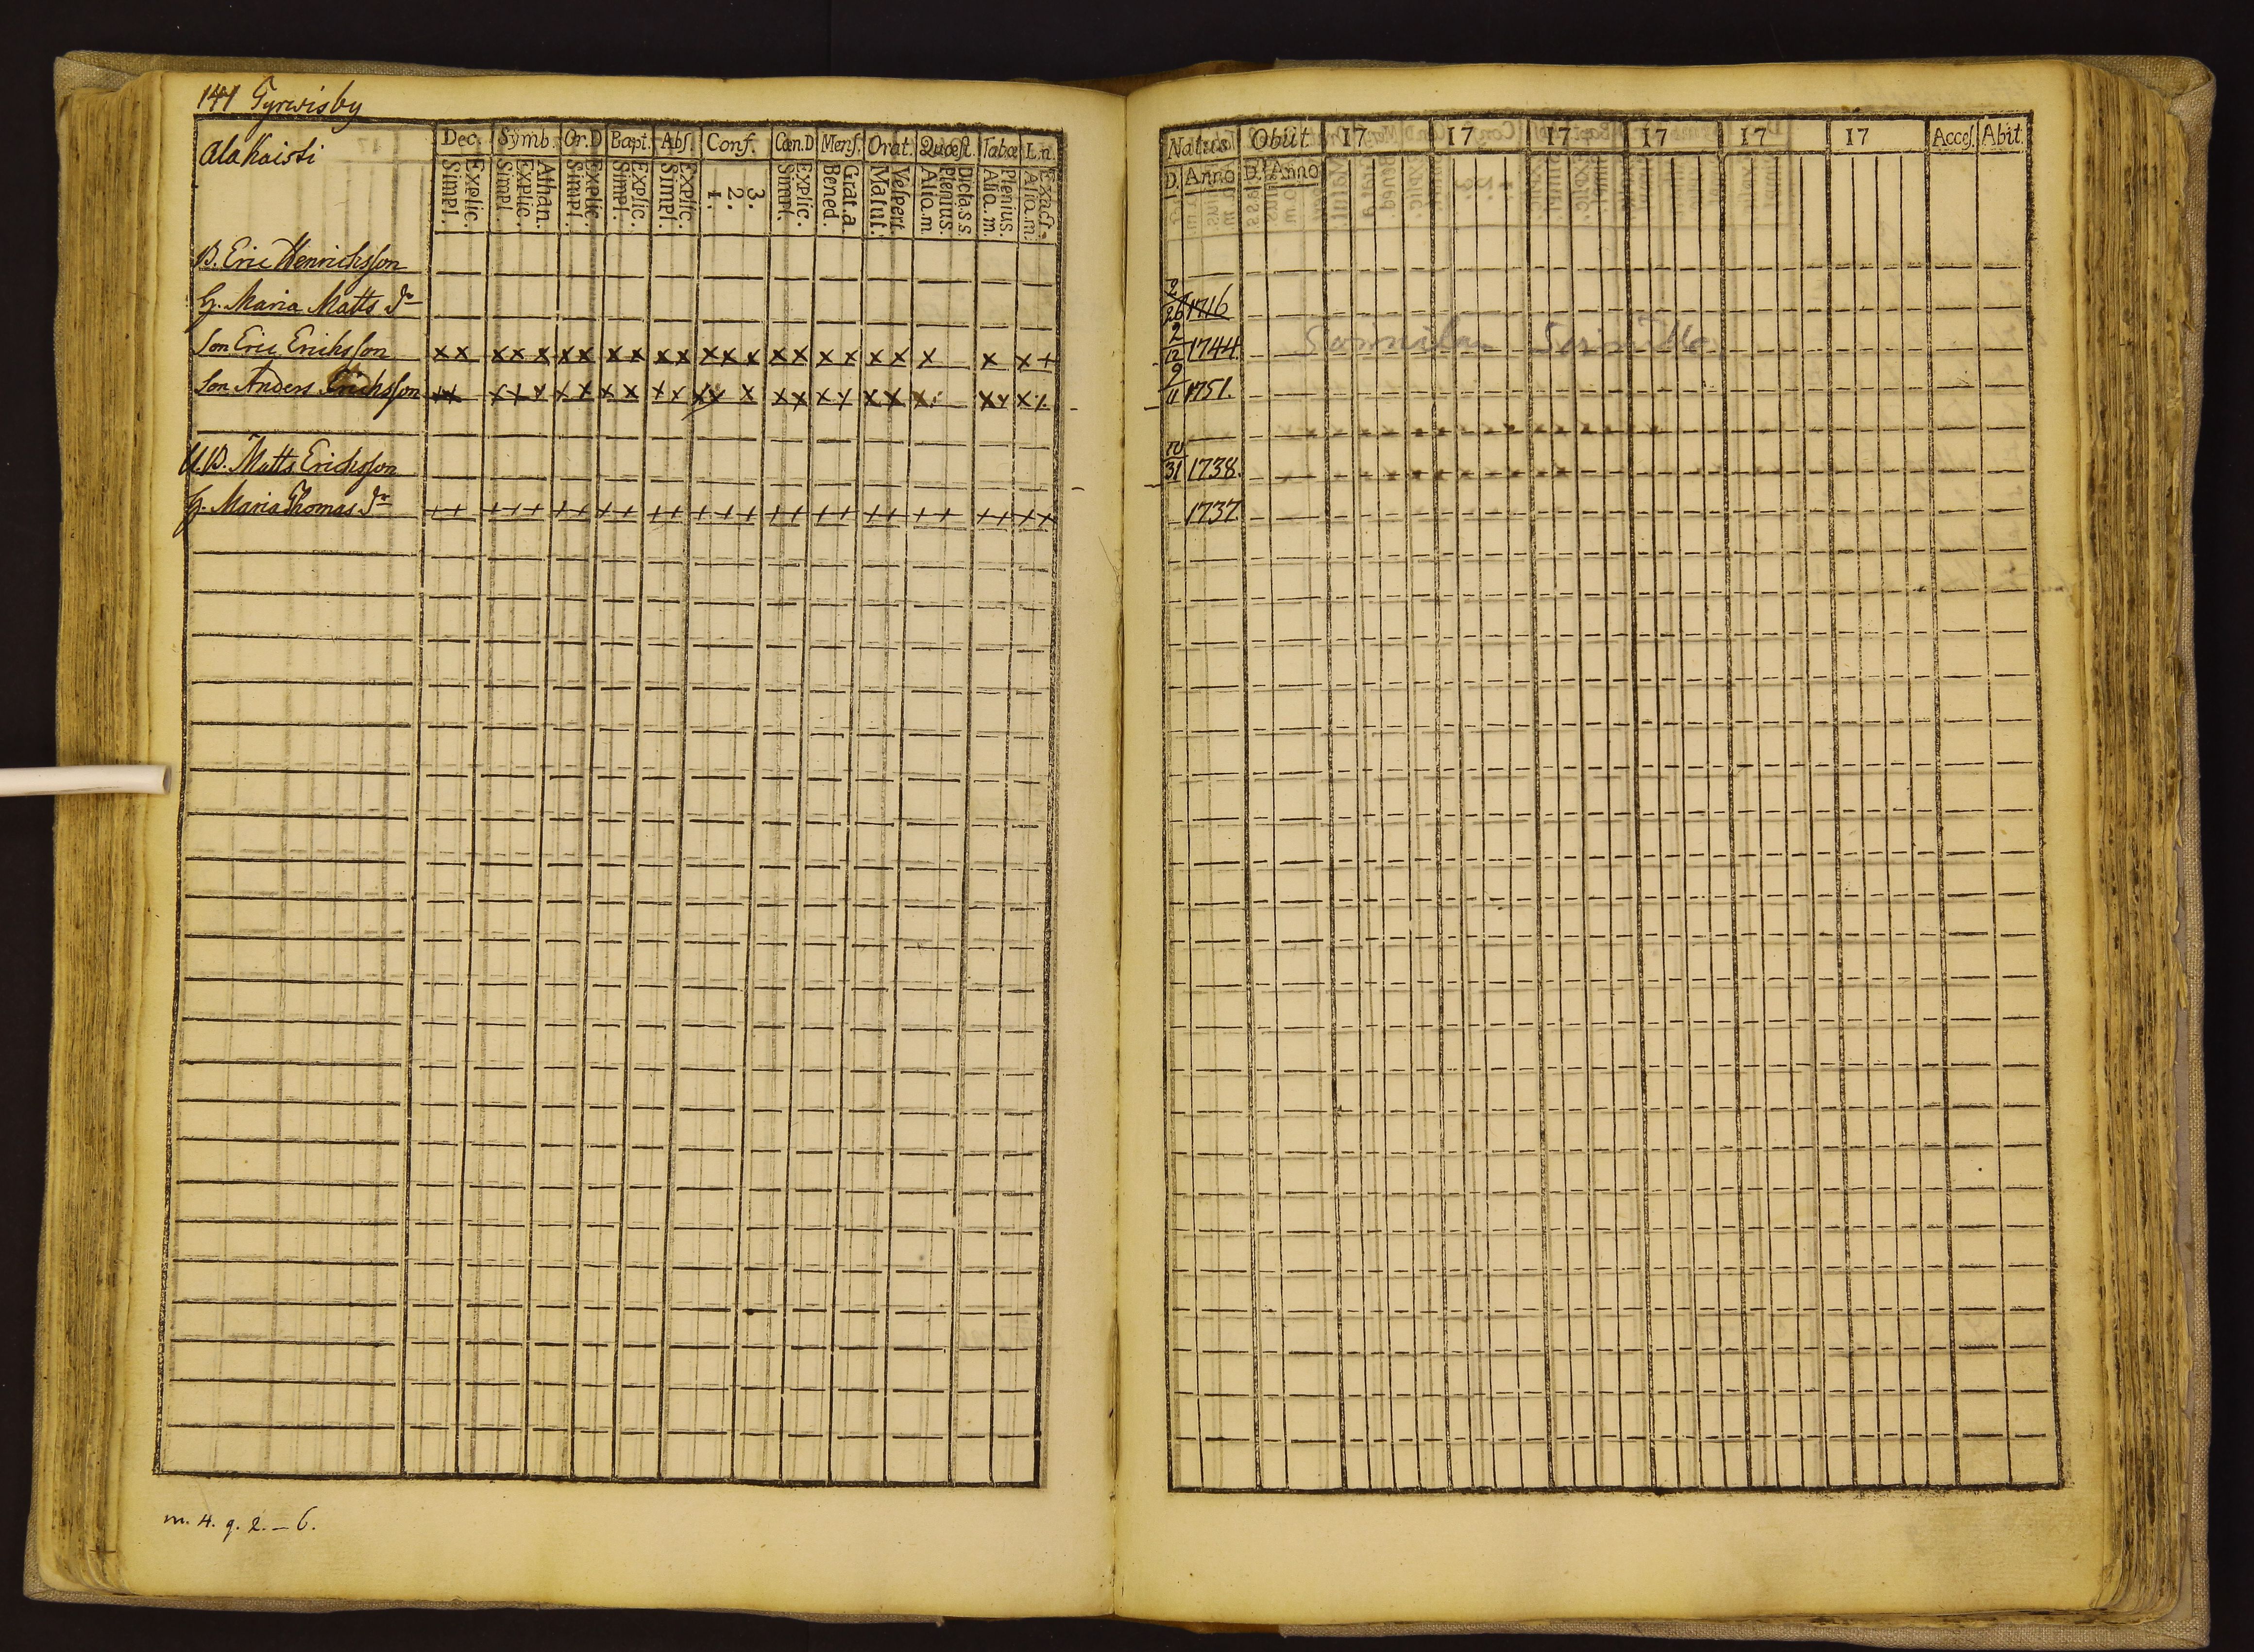 141 Tyrwisby
Alakaisti
Dec. Symb. Or.D Bapt. Abs. Conf. Cœn.D Mens. Orat. Quæst. Tabœ L.n.
Simpl. Explic. Simpl. Explic. Athan. Simpl. Explic. Simpl. Explic. Simpl. Explic. 1. 2. 3. Simpl. Explic. Bened. Grat.a Matut. Vespert. Alio.m Plenius. Dicta.s.s. Alio.m. Plenius. Alio.m. Exact.
B. Eric Henrichsson
H. Maria Matts dr
Son Eric Erichsson x x x x x x x x x x x x x x x x x x x x x x x +
Son Anders Erichsson
U.B. Matts Erichsson
H. Maria Thomas dr + + + + + + + + + + + + + + + + + + + + + + + + + +
m. 4. q. 2. – 6.
Natus Obiit 17 17 17 17 17 17 Acces. Abit.
D. Anno D. Anno
2/26 1716
2/12 1744
9/11 1751.
10/31 1738.
1737